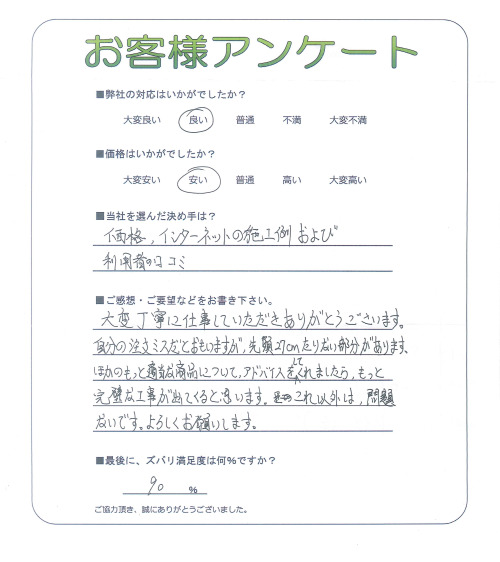 お客様アンケート
■弊社の対応はいかがでしたか?
大変良い 良い 普通 不満 大変不満
■価格はいかがでしたか?
大変安い 安い 普通 高い 大変高い
■当社を選んだ決め手は?
価格、インターネットの施工例および
利用者の口コミ
■ご感想・ご要望などをお書き下さい。
大変丁寧に仕事していただきありがとうございます。
自分の注文ミスだとおもいますが、先頭27cmたりない部分があります。
ほかのもっと適当な商品について、アドバイスをしてくれましたら、もっと
完璧な工事が出てくると思います。これ以外は、問題
ないです。よろしくお願いします。
■最後に、ズバリ満足度は何%ですか?
90 %
ご協力頂き、誠にありがとうございました。